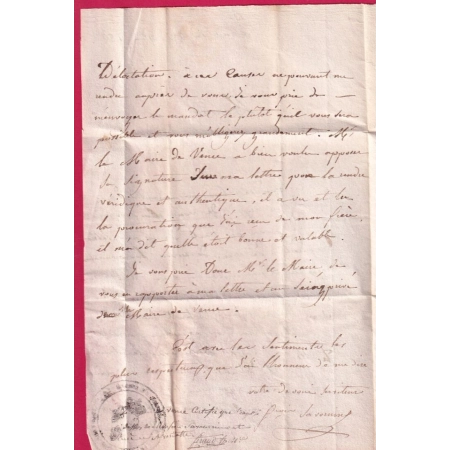 cause ne pouvant me
rendre auprès de vous je vous prie de
m'envoyer le mandat le plutôt qu'il vous sera
possible et vous m'obligerez grandement. Mr
le Maire de Vence a bien voulu apposer
la signature sur ma lettre pour la rendre
véridique et authentique, il a vu et lu
la procuration que j'ai reçu de mon frère,
il m'a dit qu'elle était bonne et valable.
Je vous prie Donc Mr le Maire, de
vous en rapporter à ma lettre et au seing privé
Maire de Vence.
C'est avec les Sentiments les
plus respectueux que j'ai l'honneur d'a me dire
votre dévoué serviteur